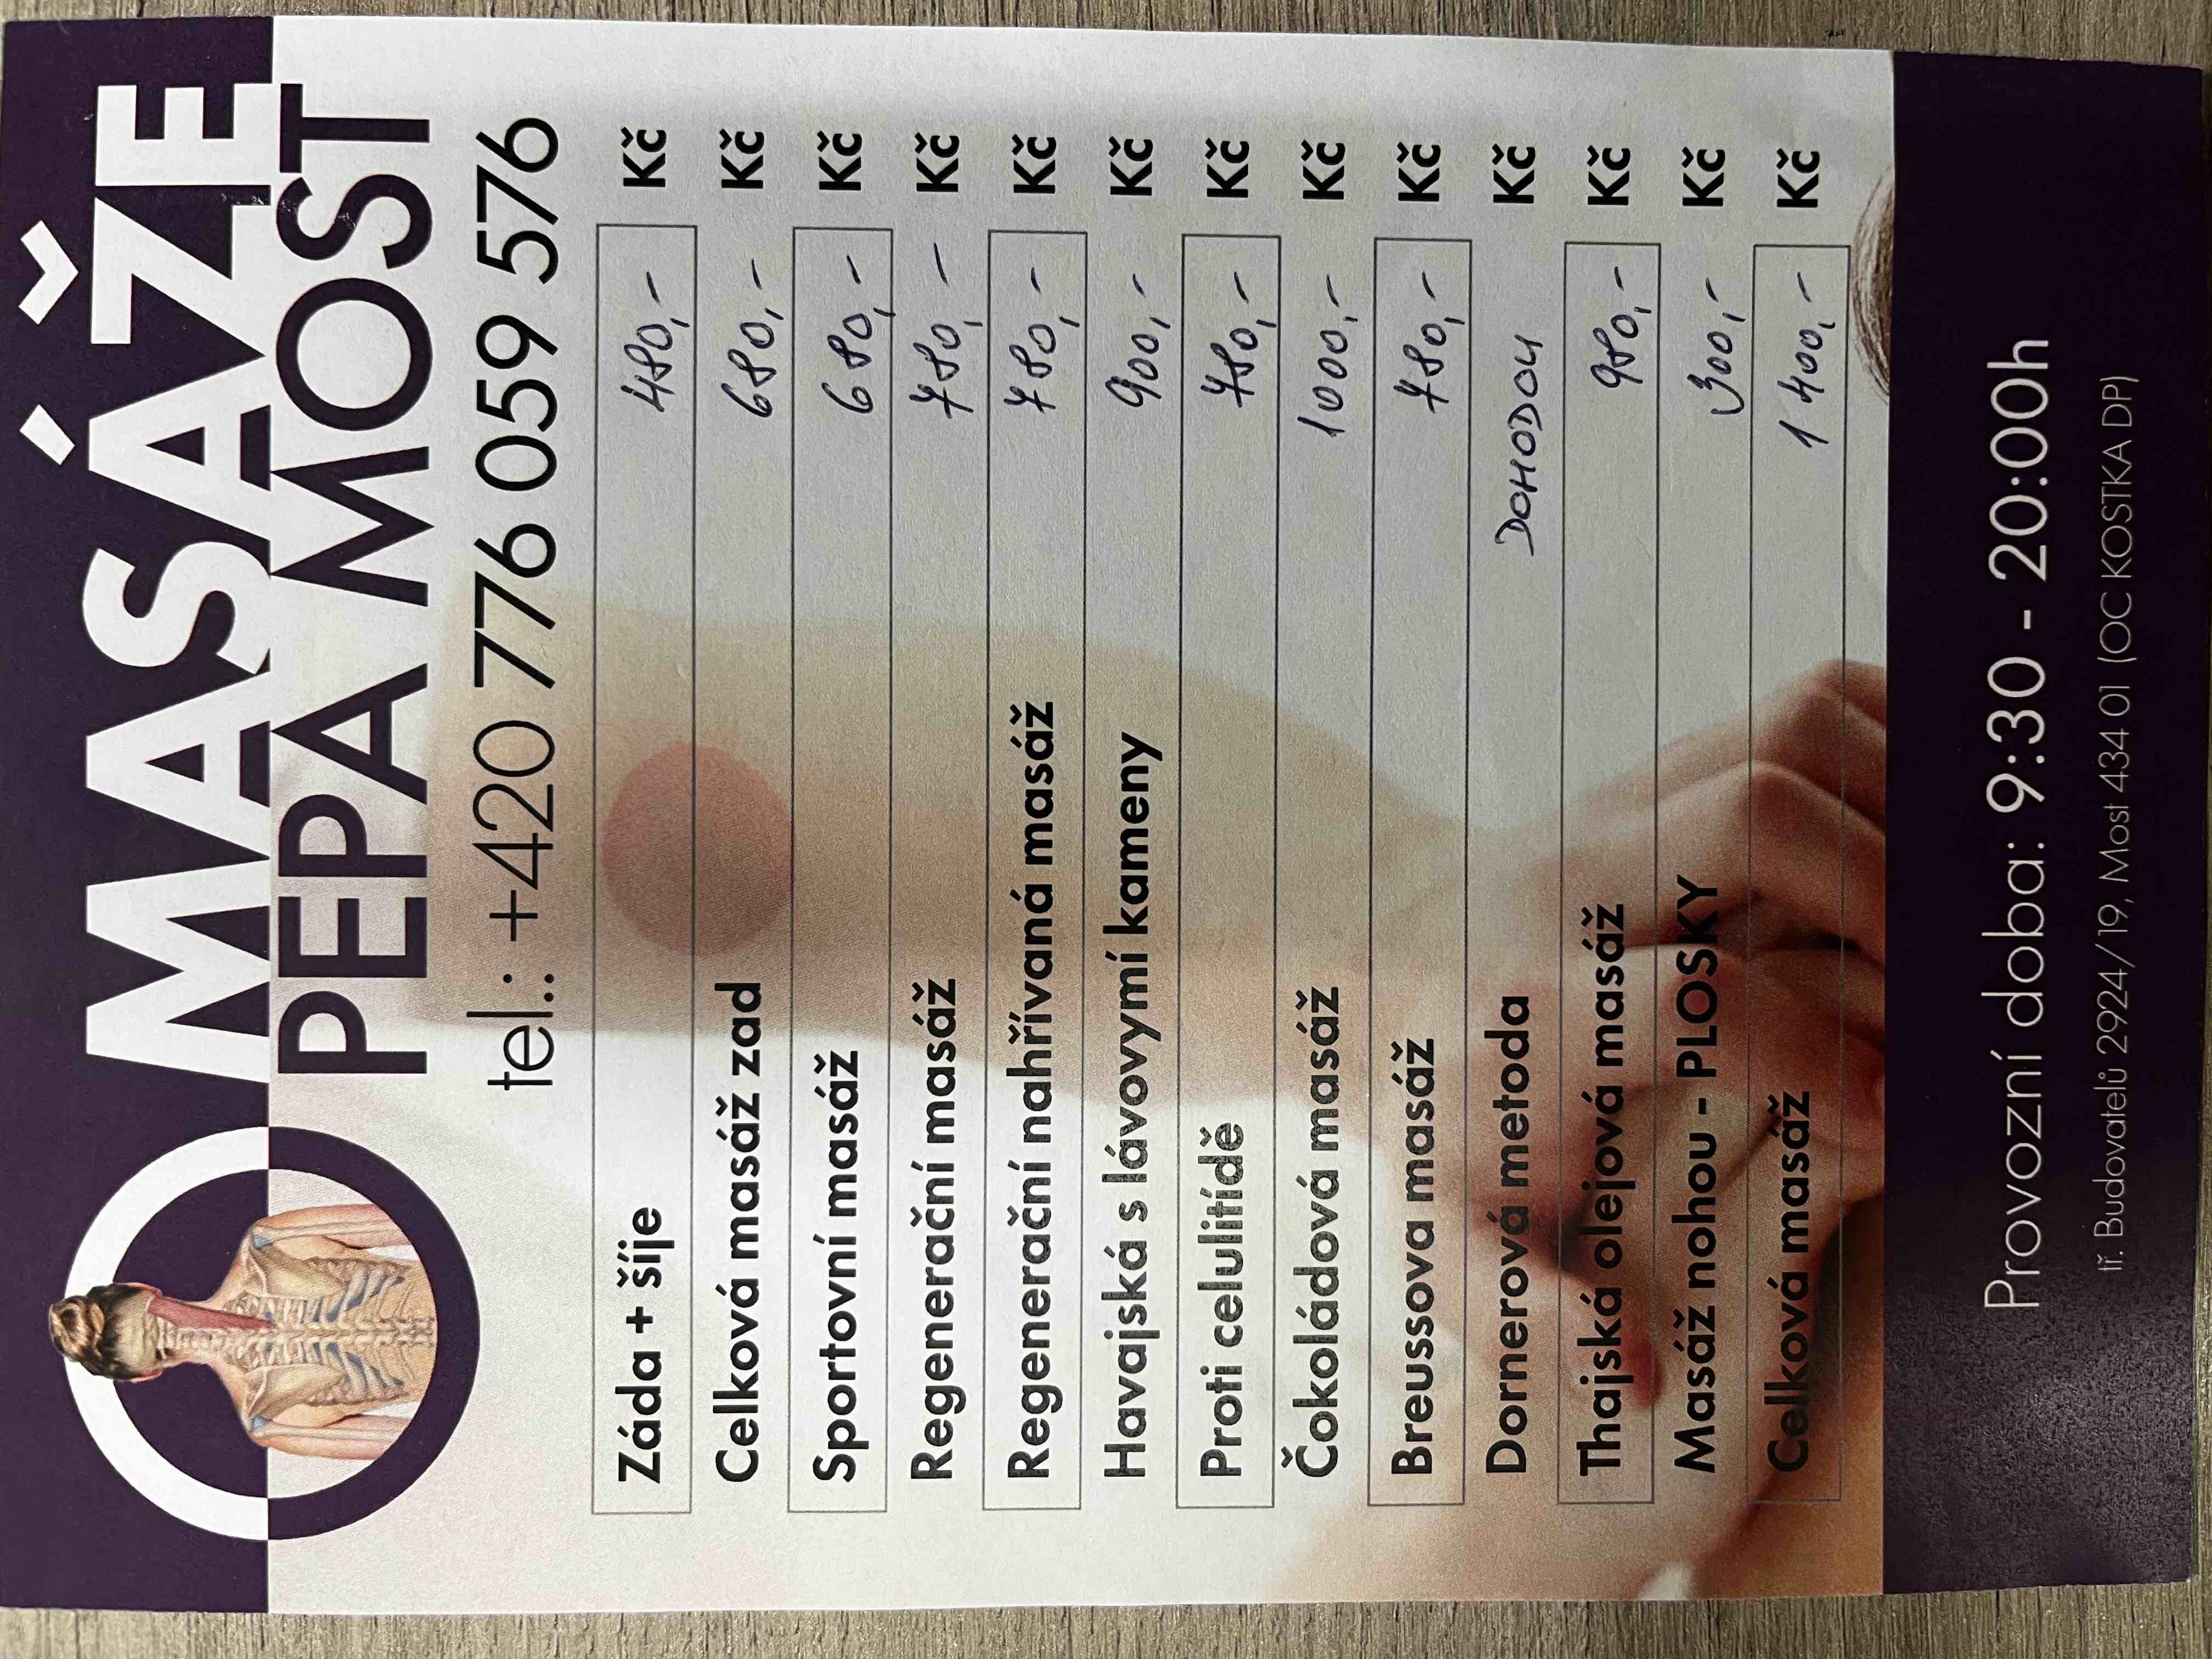 MASÁŽE
PEPA MOST
tel.: +420 776 059 576
Záda + šíje 480,- Kč
Celková masáž zad 680,- Kč
Sportovní masáž 680,- Kč
Regenerační masáž 780,- Kč
Regenerační nahřívaná masáž 780,- Kč
Havajská s lávovymí kameny 900,- Kč
Proti celulitídě 780,- Kč
Čokoládová masáž 1000,- Kč
Breussova masáž 780,- Kč
Dornerová metoda DOHODOU Kč
Thajská olejová masáž 980,- Kč
Masáž nohou - PLOSKY 300,- Kč
Celková masáž 1400,- Kč
Provozní doba: 9:30 - 20:00h
tř. Budovatelů 2924/19, Most 434 01 (OC KOSTKA DP)